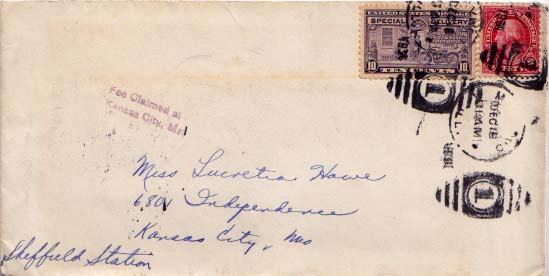 UNITED STATES POSTAGE
SPECIAL DELIVERY
10 TEN CENTS 10
Fee Claimed at
Kansas City, Mo
1
DEC 18
1
Miss Lucretia Howe
6801 Independence
Kansas City, Mo
Sheffield Station